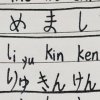 め ま し
li yu kin ken
りゅ きん けん